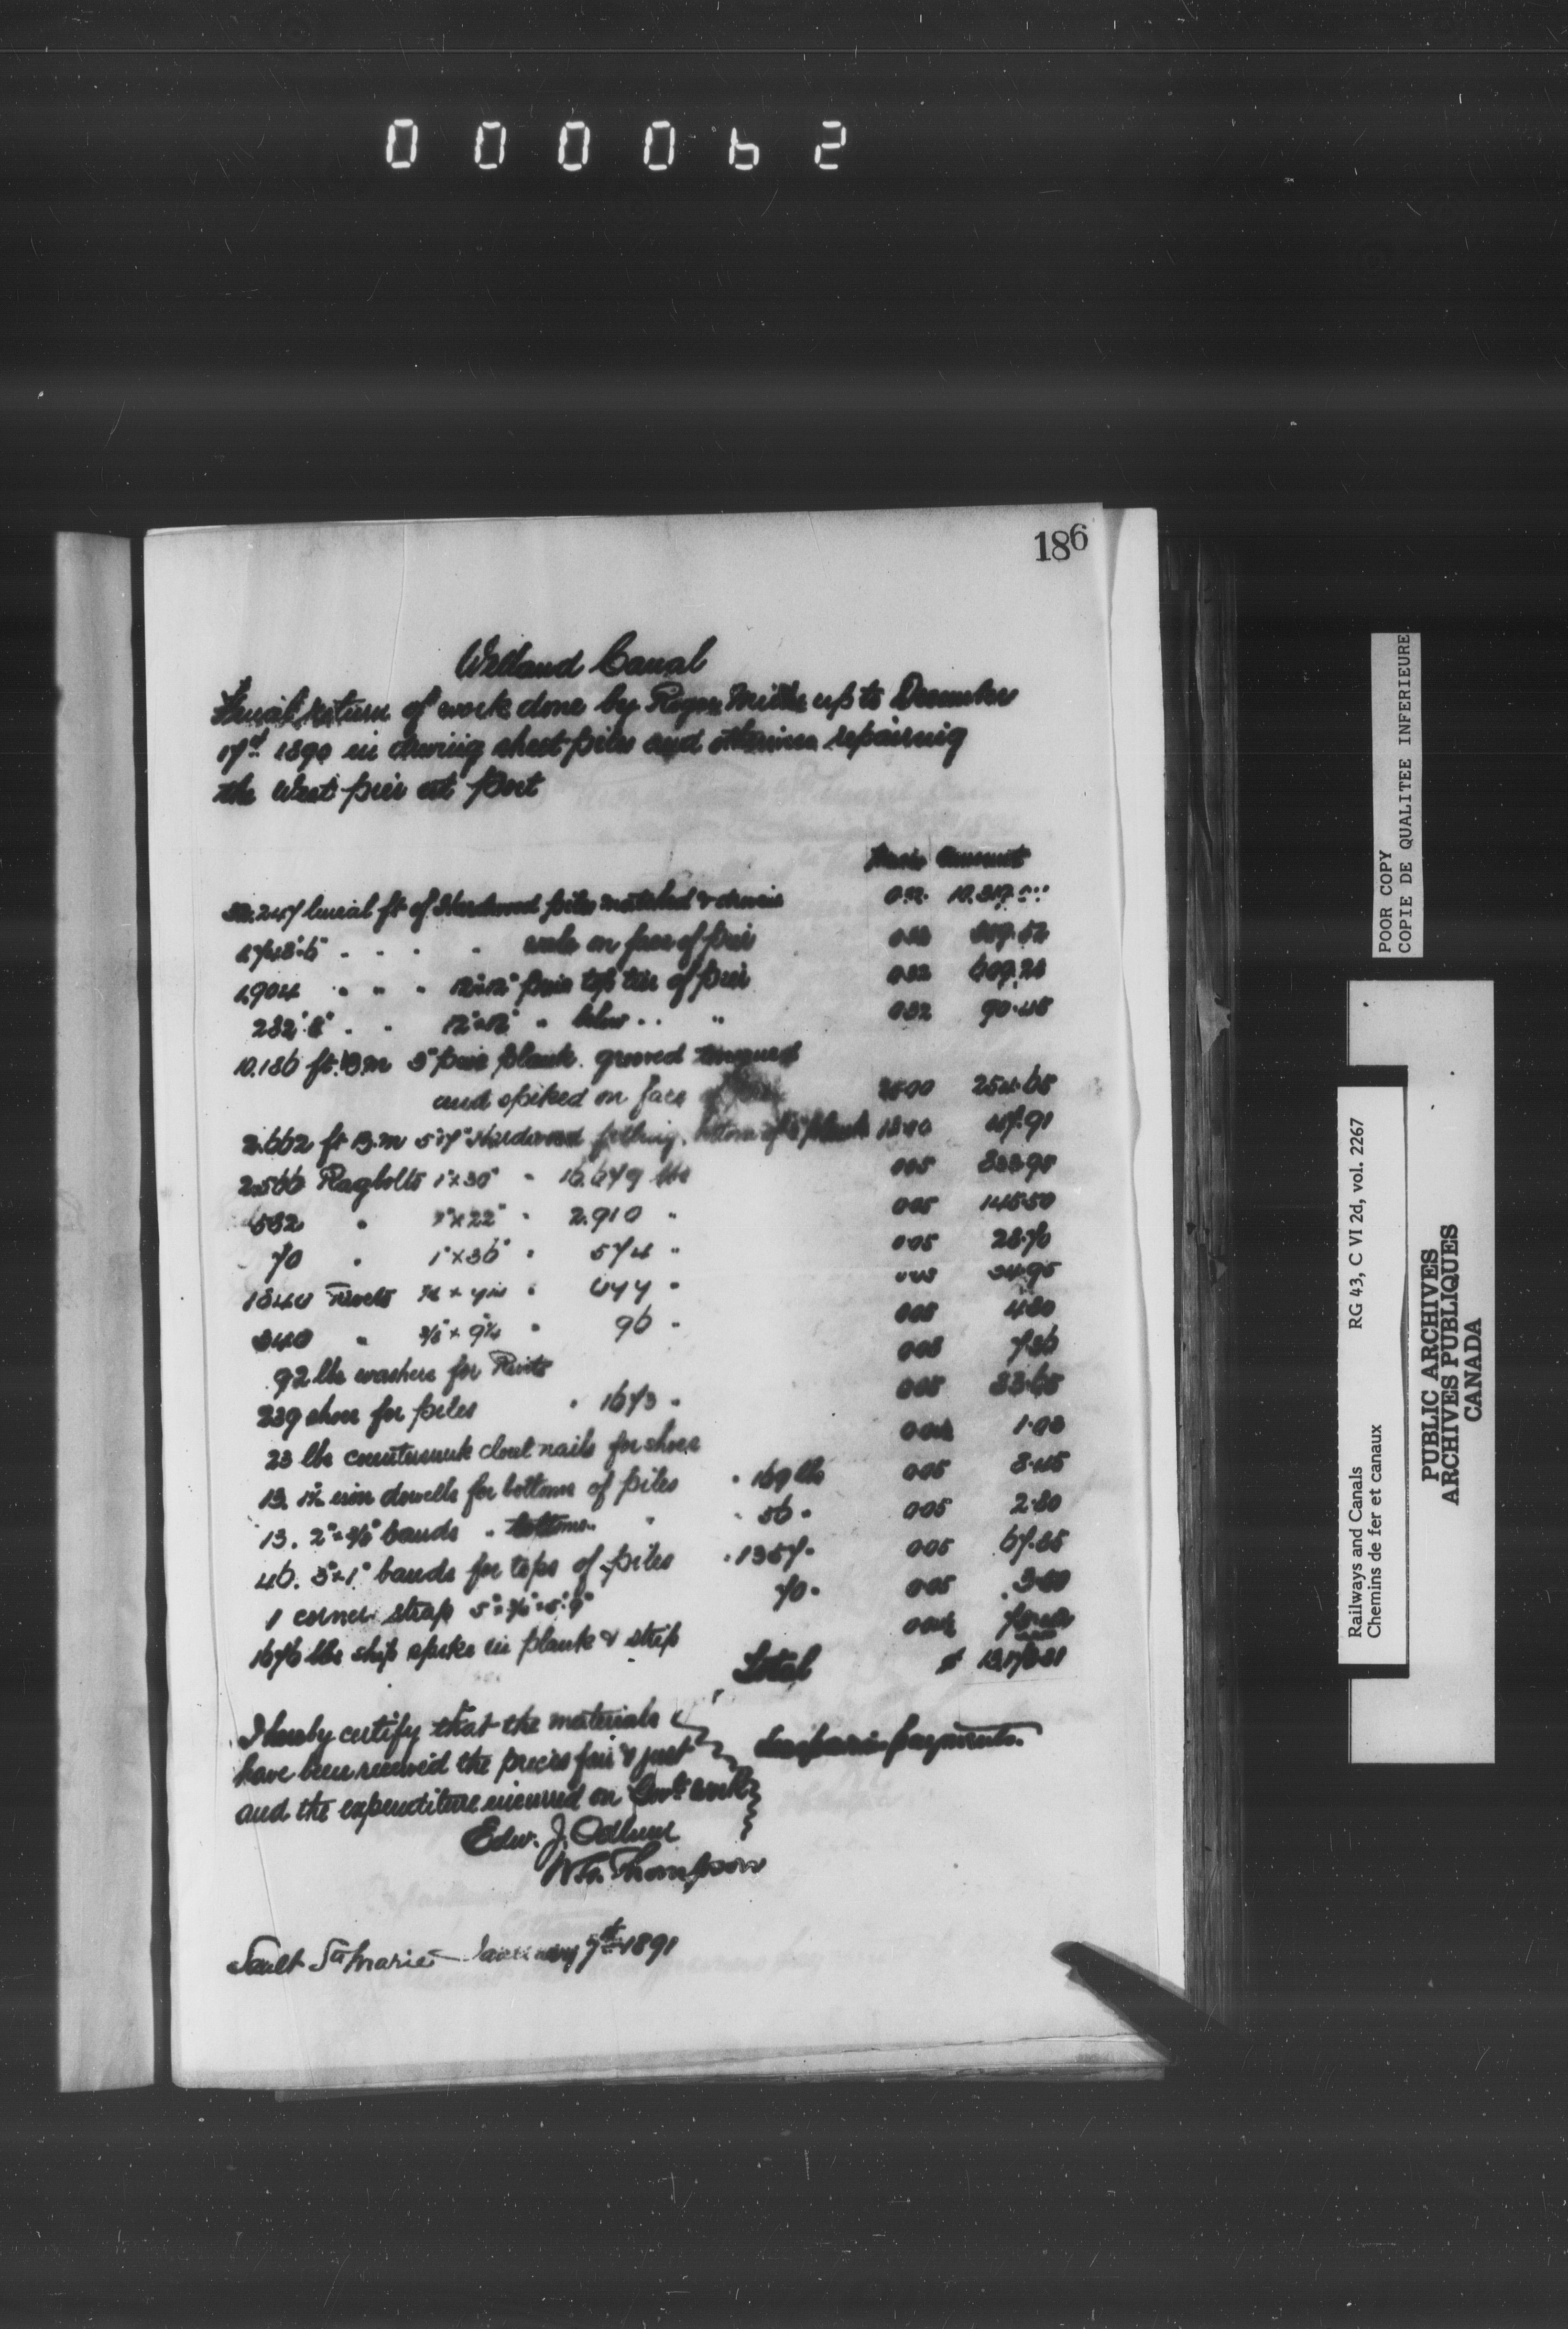 000062
186
Welland Canal
Final return of work done by Roger Miller up to December
17th 1890 in driving sheet piles and otherwise repairing
the West pier at Port
Amount
32.247 lineal ft of Hardwood piles matched & driven 0.32
1748'6" . . . . wale on face of pier 0.32
1.904 " " " 12"x12" pine top tier of pier 0.32 609.28
282'8" . . 12"x12" " below . . " 0.32 90.45
10.186 ft. B.m 3" pine plank. grooved tongued
and spiked on face of pier 25.00 254.65
2.662 ft B.m 5"x7" Hardwood bottom of plank 18.00 47.91
2.566 Ragbolts 1"x30" " 16.679 lbs 0.05 833.95
532 " 1"x22" " 2.910 " 0.05 145.50
70 " 1"x36" " 574 " 0.05 28.70
1840 Rivets
340 " 3/8"x9 1/2 " 96 " 0.05 4.80
92 lbs washers for Rivets 0.08 7.36
239 shoes for piles " 1673 " 0.05 83.65
23 lbs countersunk clout nails for shoes 1.03
13. iron dowells for bottoms of piles " 169 lbs 0.05 8.45
13. 2"x3/8" bands " bottoms " " 56 " 0.05 2.80
46. 3"x1" bands for tops of piles " 1357 " 0.05 67.85
1 corner strap 70 " 0.05
1676 lbs ship spikes in plank & strip
Total $
I hereby certify that the materials
have been received the prices fair & just
and the expenditure incurred on Govt. work
payments.
Edw. J. Odlum
Wm. Thompson
Sault Ste Marie January 7th 1891
POOR COPY
COPIE DE QUALITEE INFERIEURE
Railways and Canals RG 43, C VI 2d, vol. 2267
Chemins de fer et canaux
PUBLIC ARCHIVES
ARCHIVES PUBLIQUES
CANADA